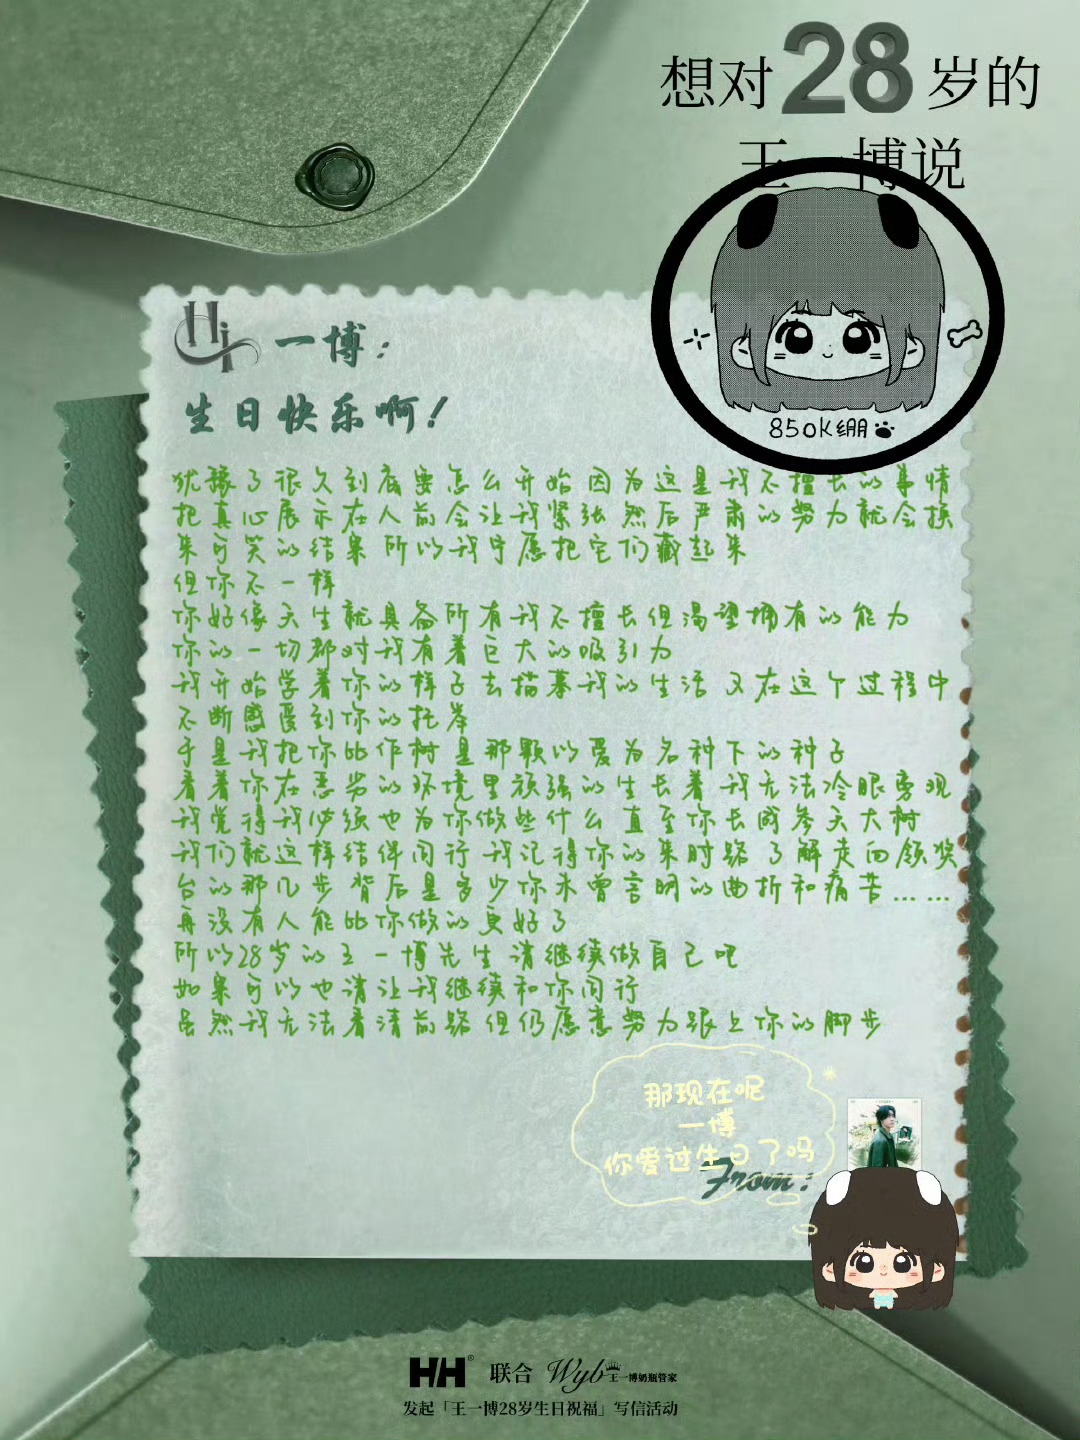 想对28岁的
王一博说
850K绷
Hi 一博：
生日快乐啊！
犹豫了很久到底要怎么开始因为这是我不擅长的事情
把真心展示在人前会让我紧张 然后严肃的努力就会换
来可笑的结果 所以我宁愿把它们藏起来
但你不一样
你好像天生就具备所有我不擅长但渴望拥有的能力
你的一切都对我有着巨大的吸引力
我开始学着你的样子去描摹我的生活 又在这个过程中
不断感受到你的托举
于是我把你比作树 是那颗以爱为名种下的种子
看着你在恶劣的环境里顽强的生长着 我无法冷眼旁观
我觉得我必须也为你做些什么 直至你长成参天大树
我们就这样结伴同行 我记得你的来时路 了解走向领奖
台的那几步 背后是多少你未曾言明的曲折和痛苦……
再没有人能比你做的更好了
所以28岁的王一博先生 请继续做自己吧
如果可以也请让我继续和你同行
虽然我无法看清前路 但仍愿意努力跟上你的脚步
那现在呢
一博
你爱过生日了吗
From：
HH® 联合 Wyb王一博奶瓶管家
发起「王一博28岁生日祝福」写信活动